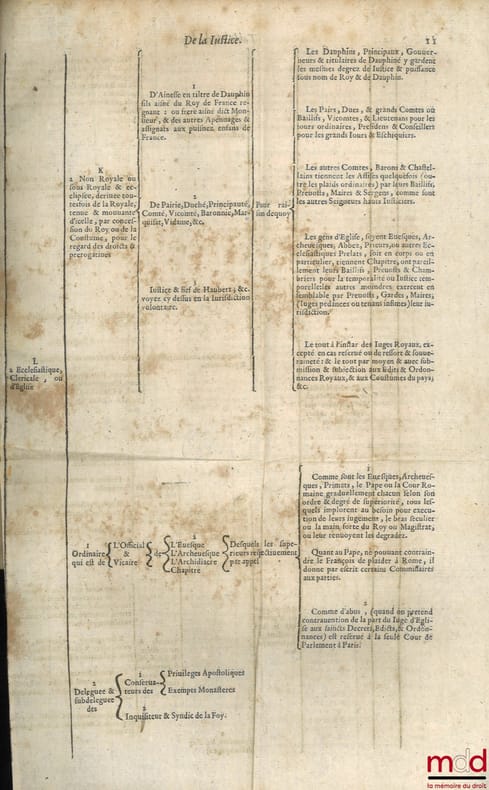 De la Iustice.
11
K
2 Non Royale ou
sous Royale & ec-
clipsee, deriuee tou-
tesfois de la Royale,
tenue & mouuante
d'icelle, par conces-
sion du Roy ou de la
Coustume, pour le
regard des droicts &
prerogatiues
1
D'Ainesse en tiltre de Dauphin
fils aisné du Roy de France re-
gnant : ou frere aisné dict Mon-
sieur, & des autres Apennages &
assignats aux puisnez enfans de
France.
2
De Pairie, Duché, Principauté,
Comté, Vicomté, Baronnie, Mar-
quisat, Vidame, &c.
Iustice & fief de Haubert, &c.
voyez cy dessus en la Iurisdiction
volontaire.
Pour rai-
son dequoy
Les Dauphins, Principaux, Gouuer-
neurs & titulaires de Dauphiné y gardent
les mesmes degrez de Iustice & puissance
sous nom de Roy & de Dauphin.
Les Pairs, Ducs, & grands Comtes ou
Baillifs, Vicomtes, & Lieutenans pour les
iours ordinaires, Presidens & Conseillers
pour les grands Iours & Eschiquiers.
Les autres Comtes, Barons & Chastel-
lains tiennent les Assises quelquefois (ou-
tre les plaids ordinaires) par leurs Baillifs,
Preuosts, Maires & Sergens, comme font
les autres Seigneurs hauts Iusticiers.
Les gens d'Eglise, soyent Euesques, Ar-
cheuesques, Abbez, Prieurs, ou autres Ec-
clesiastiques Prelats, soit en corps ou en
particulier, tiennent Chapitre, ont pareil-
lement leurs Baillifs, Preuosts & Cham-
briers pour la temporalité ou Iustice tem-
porelle: les autres moindres exercent en
semblable par Preuosts, Gardes, Maires,
(Iuges pedanees ou tenans infimes) leur iu-
risdiction.
Le tout à l'instar des Iuges Royaux, ex-
cepté en cas reserué ou de ressort & souue-
raineté: & le tout par moyen & auec sub-
mission & subiection aux Edits & Ordon-
nances Royaux, & aux Coustumes du pays,
&c.
L
2 Ecclesiastique,
Clericale, ou
d'Eglise
1
Ordinaire
qui est de
L'Official
&
Vicaire
de
L'Euesque
L'Archeuesque
L'Archidiacre
Chapitre
Desquels les supe-
rieurs respectiuement
par appel
1
Comme sont les Euesques, Archeues-
ques, Primats, le Pape ou la Cour Ro-
maine graduellement chacun selon son
ordre & degré de superiorité, tous les-
quels implorent au besoin pour execu-
tion de leurs iugemens, le bras seculier
ou la main forte du Roy ou Magistrat,
ou leur renuoyent les degradez.
Quant au Pape, ne pouuant contrain-
dre le François de plaider à Rome, il
donne par escrit certains Commissaires
aux parties.
2
Comme d'abus, (quand on pretend
contrauention de la part du Iuge d'Egli-
se aux saincts Decrets, Edicts, & Ordon-
nances) est reserué à la seule Cour de
Parlement à Paris.
2
Deleguee &
subdeleguee
des
1
Conserua-
teurs des
Priuileges Apostoliques
Exempts Monasteres
2
Inquisiteur & Syndic de la Foy.
mdd
la mémoire du droit